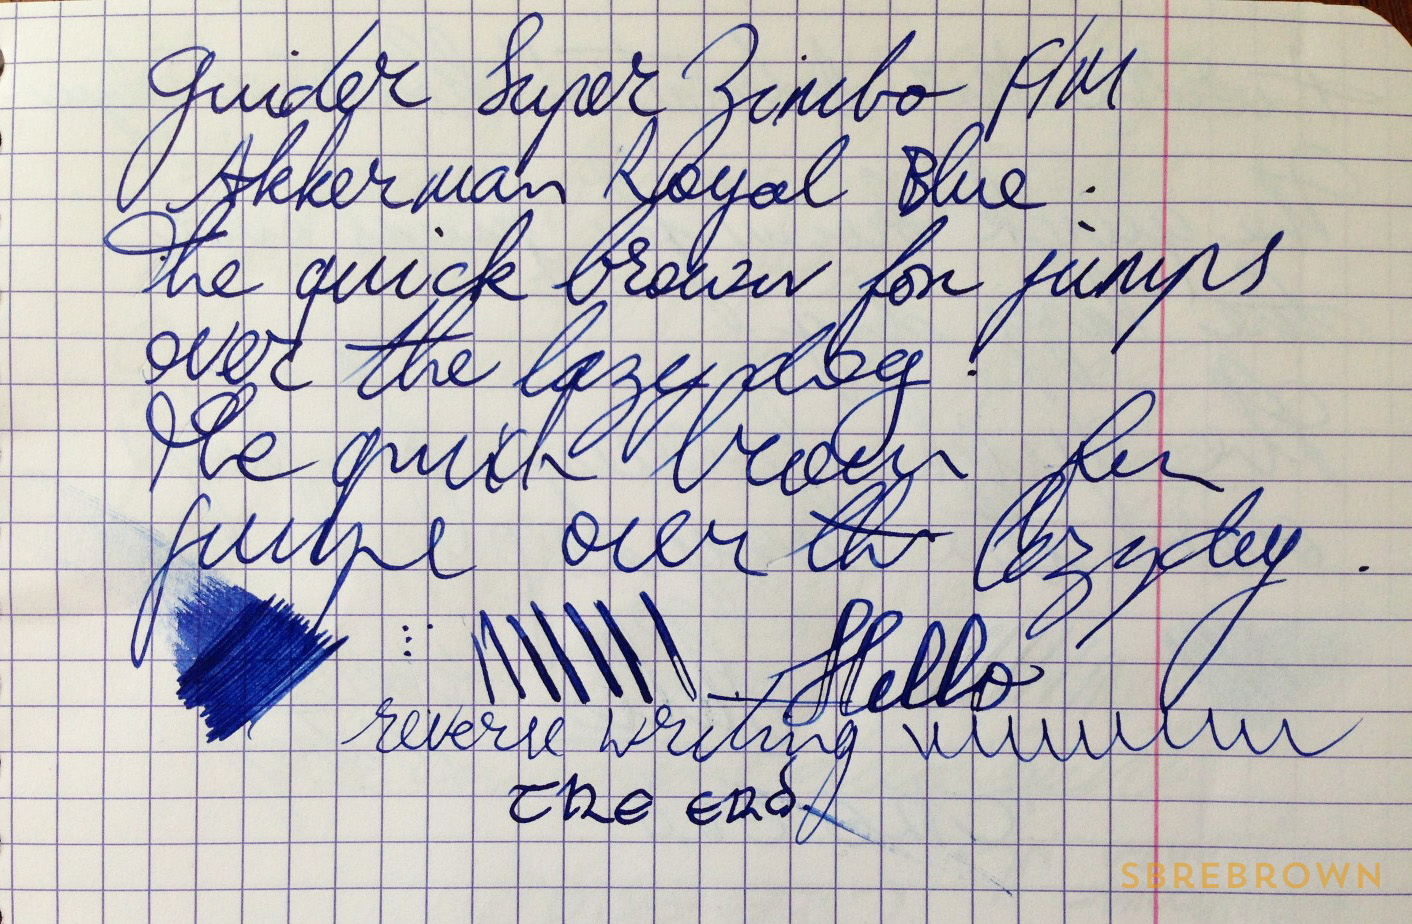 Guider Super Zimbo F/M
Akkerman Royal Blue.
The quick brown fox jumps
over the lazy dog!
The quick brown fox
jumps over the lazy dog.
Hello
reverse writing
the end
SBREBROWN